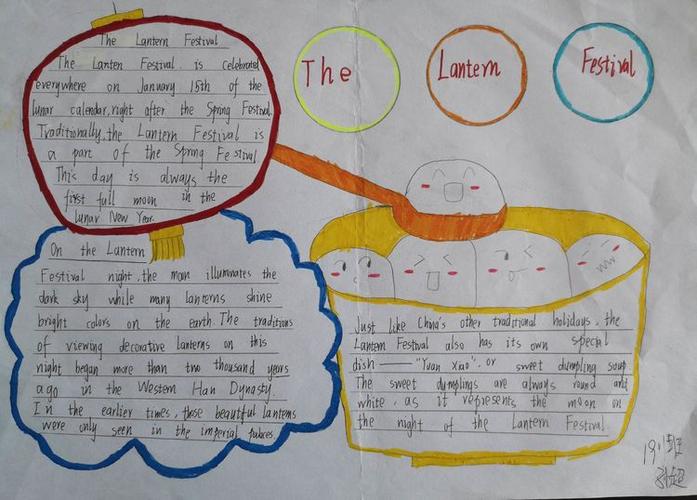 The Lantern Festival
The Lanten Festival is celebrated
everywhere on January 15th of the
lunar calendar, right after the Spring Festival.
Traditionally, the Lantern Festival is
a part of the Spring Festival
This day is always the
first full moon in the
lunar New Year.
The
Lantern
Festival
On the Lantern
Festival night, the moon illuminates the
dark sky while many lanterns shine
bright colors on the earth The traditions
of viewing decorative lanterns on this
night began more than two thousand years
ago in the Western Han Dynasty.
In the earlier times, those beautiful lantems
were only seen in the imperial
Just like China's other traditional holidays, the
Lantern Festival also has its own special
dish — "Yuan xiao", or sweet dumpling soup
The sweet dumplings are always round and
white, as it represents the moon on
the night of the Lantern Festival
班